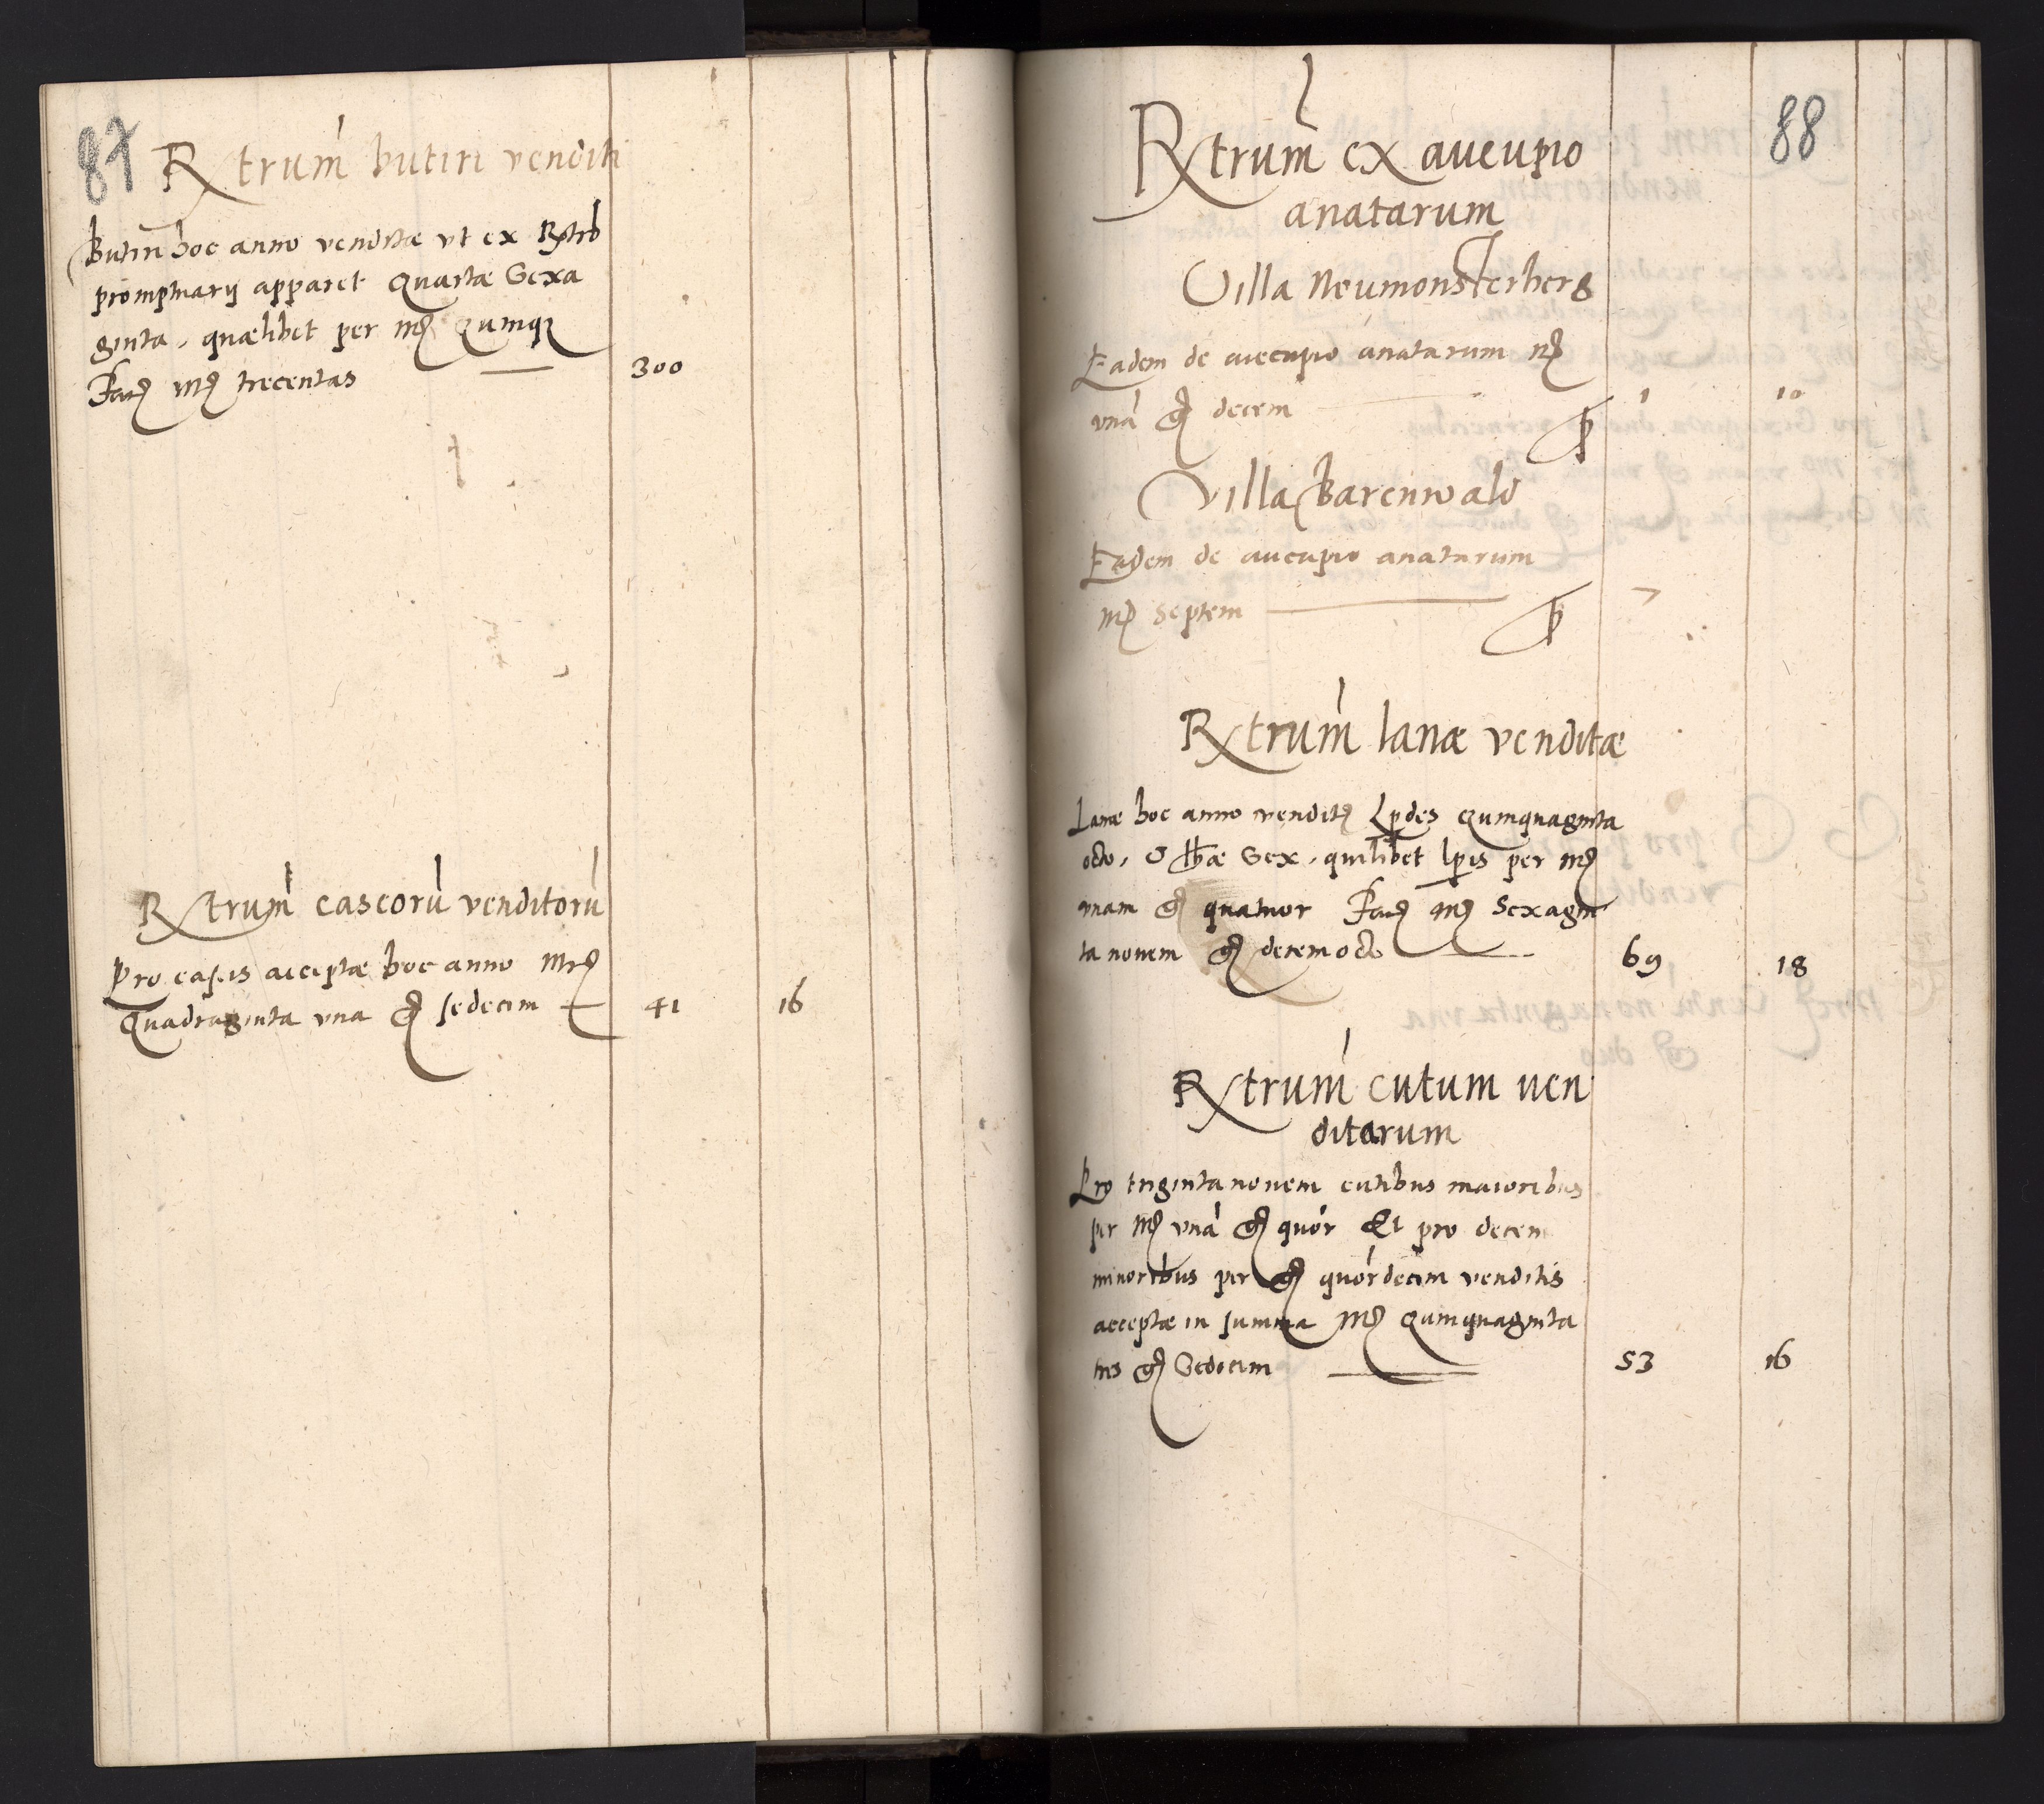 87
Rxtrum butiri venditi
Butiri hoc anno venditæ vt ex Rxtrb
promptuarij apparet Quartæ Sexa
ginta, quælibet per mr Qumqz
Faci mr trecentas 300
Rxtrum caseorú venditorú
Pro caseis acceptæ hoc anno mr
Quadraginta vna gr sedecim 41 16
88
Rxtrum ex aucupio
anatarum
Villa Neumonsterberg
Eadem de aucupio anatarum mr
vná gr decem 1 10
Villa Barenwald
Eadem de aucupio anatarum
mr septem 7
Rxtrum lanæ venditæ
Lanæ hoc anno vendit Lpdes Qumquaginta
octo, & lbæ Sex, quilibet lpis per mr
vnam gr quatuor Faci mr Sexagin
ta novem gr decemocto 69 18
Rxtrum cutum ven
ditarum
Pro triginta novem cutibus maioribus
per mr vná gr quór Et pro decem
minoribus per gr quórdecim venditis
acceptæ in summa mr Qumquaginta
tres gr Sedecim 53 16